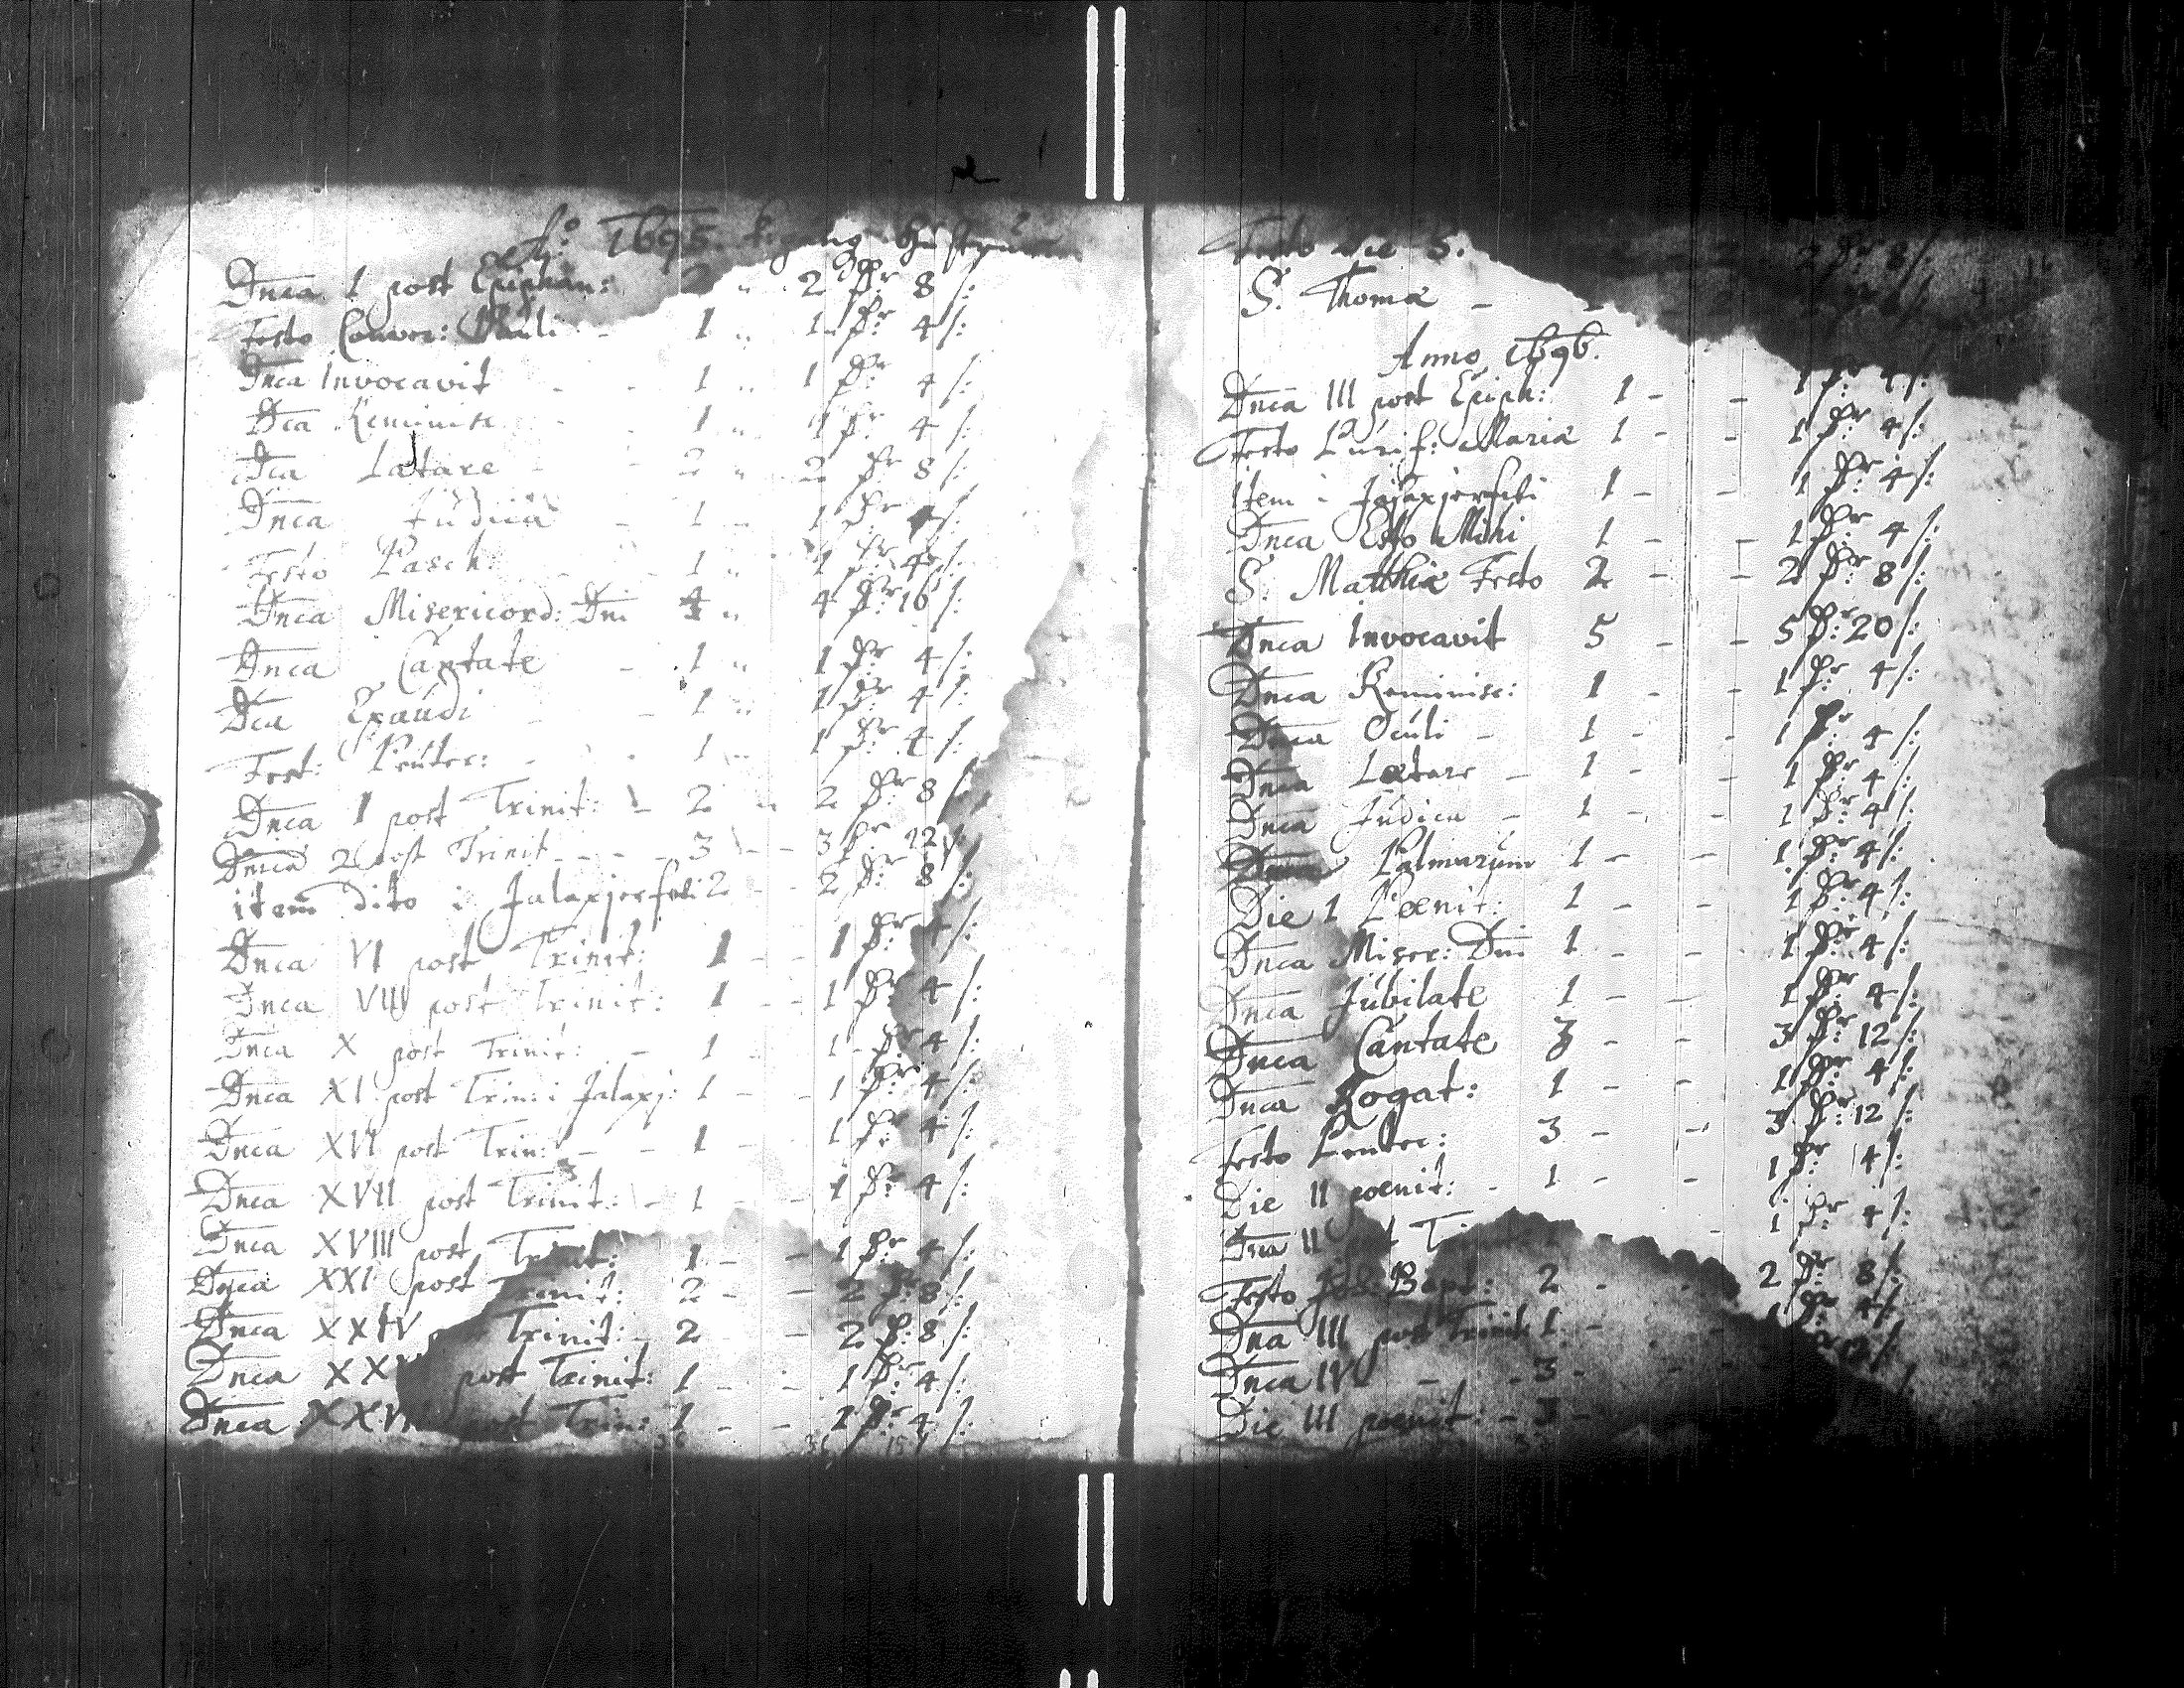 1695.
Dnca 1 post Epiphan: 2 „ 2 pr 8 /:
Festo Conver: Pauli - 1 „ 1 pr: 4 /:
Dnca Invocavit - - 1 „ 1 pr: 4 /:
Dca Reminisc - 1 „ 1 pr: 4 /:
Dca Lætare - - 2 „ 2 pr: 8 /:
Dnca Judica - 1 „ 1 pr: 4 /:
Festo Pasch: - - 1 „ 1 pr: 4 /:
Dnca Misericord: Dni 4 „ 4 pr: 16 /:
Dnca Cantate - 1 „ 1 pr: 4 /:
Dca Exaudi - - 1 „ 1 pr: 4 /:
Fest: Pentec: - - 1 „ 1 pr: 4 /:
Dnca 1 post Trinit: - 2 „ 2 pr: 8 /:
Dnica 2 post Trinit - - - 3 - - 3 pr: 12 /:
item dito i Jalaxjerfvi 2 - - 2 pr: 8 /:
Dnca VI post Trinit: 1 - - 1 pr: 4 /:
Dnca VIII post Trinit: 1 - - 1 pr: 4 /:
Dnca X post Trinit: - 1 - 1 - pr: 4 /:
Dnca XI post Trin: i Jalaxj: 1 - - 1 pr: 4 /:
Dnca XVI post Trin: - - 1 - - 1 pr: 4 /:
Dnca XVII post Trinit: - 1 - - 1 pr: 4 /:
Dnca XVIII post Trinit: 1 - - 1 pr: 4 /:
Dnca XXI post Trinit: 2 - - 2 pr: 8 /:
Dnca XXIV Trinit: - 2 - - 2 pr: 8 /:
Dnca post Trinit: 1 - - 1 pr: 4 /:
Dnca post Trin: 1 - - 1 pr: 4 /:
Festo Die 3. 2 pr 8 /:
S. Thomæ -
Anno 1696.
Dnca III post Epiph: 1 - - 1 pr: 4 /:
Festo Purif: Mariæ 1 - - 1 pr: 4 /:
Item i Jalaxjerfvi 1 - - 1 pr: 4 /:
Dnca Esto Mihi 1 - - 1 pr: 4 /:
S. Matthiæ Festo 2 - - 2 pr: 8 /:
Dnca Invocavit 5 - - 5 pr: 20 /:
Dnca Reminisc: 1 - - 1 pr: 4 /:
Dnca Oculi - 1 - - 1 pr: 4 /:
Dnca Lætare - 1 - - 1 pr: 4 /:
Dnca Judica - 1 - - 1 pr: 4 /:
Dnca Palmarum 1 - - 1 pr: 4 /:
Die 1 Pœnit: 1 - - 1 pr: 4 /:
Dnca Miser: Dni 1 - - 1 pr: 4 /:
Dnca Jubilate 1 - - 1 pr: 4 /:
Dnca Cantate 3 - - 3 pr: 12 /:
Dnca Rogat: 1 - - 1 pr: 4 /:
Festo Pentec: 3 - - 3 pr: 12 /:
Die II pœnit: - 1 - - 1 pr: 4 /:
Dnca II - 1 pr: 4 /:
Festo Bapt: 2 - - 2 pr: 8 /:
Dnca III post Trinit: 1 - - 1 pr: 4 /:
Dnca IV - - 3 -
Die III pœnit: - 3 -